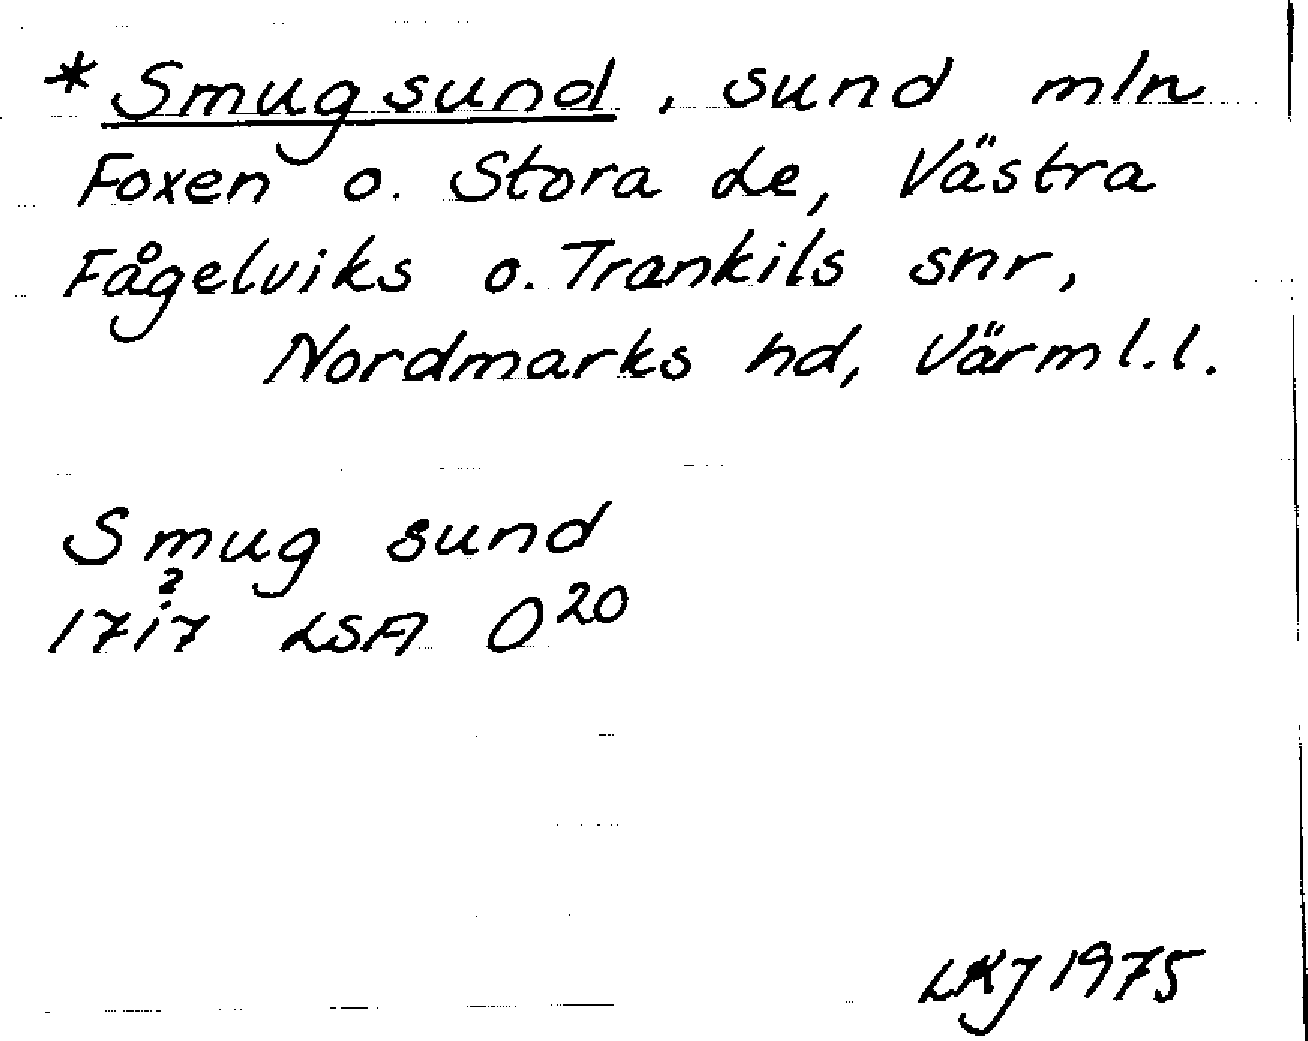 *Smugsund, sund mln
Foxen o. Stora Le, Västra
Fågelviks o. Trankils snr,
Nordmarks hd, Värml. l.
Smug sund
?
1717 LSA O20
LKJ 1975